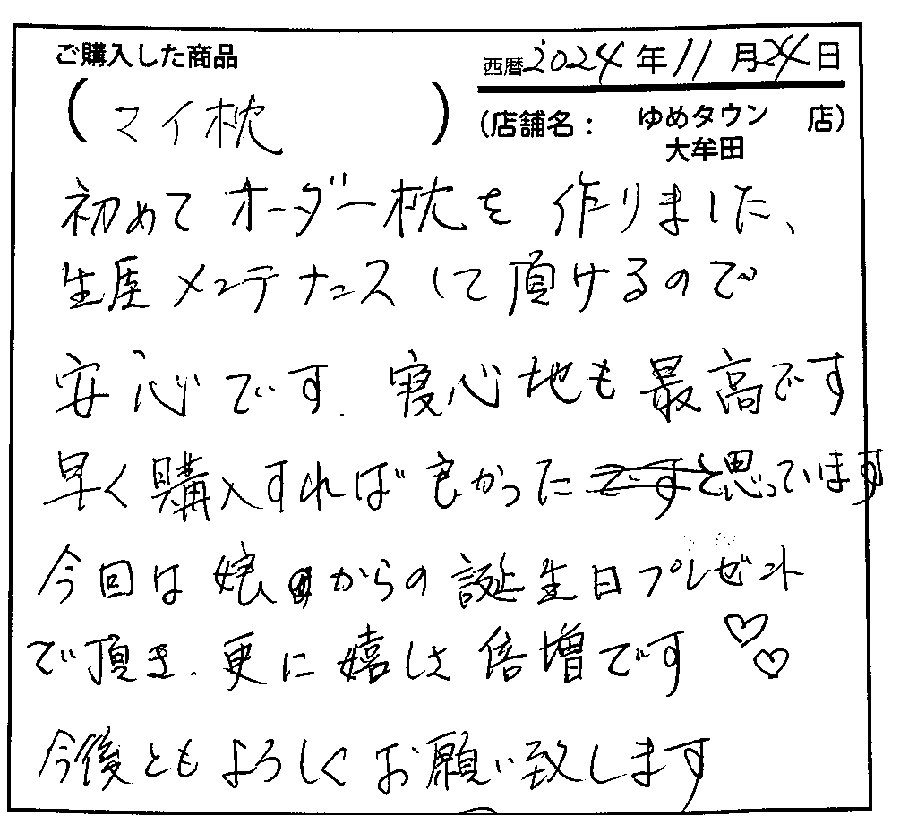 ご購入した商品
西暦2024年11月24日
(マイ枕)
(店舗名： ゆめタウン 店)
大牟田
初めてオーダー枕を作りました、
生涯メンテナンスして頂けるので
安心です. 寝心地も最高です
早く購入すれば良かったですと思っています
今回は娘からの誕生日プレゼント
で頂き、更に嬉しさ倍増です♡♡
今後ともよろしくお願い致します